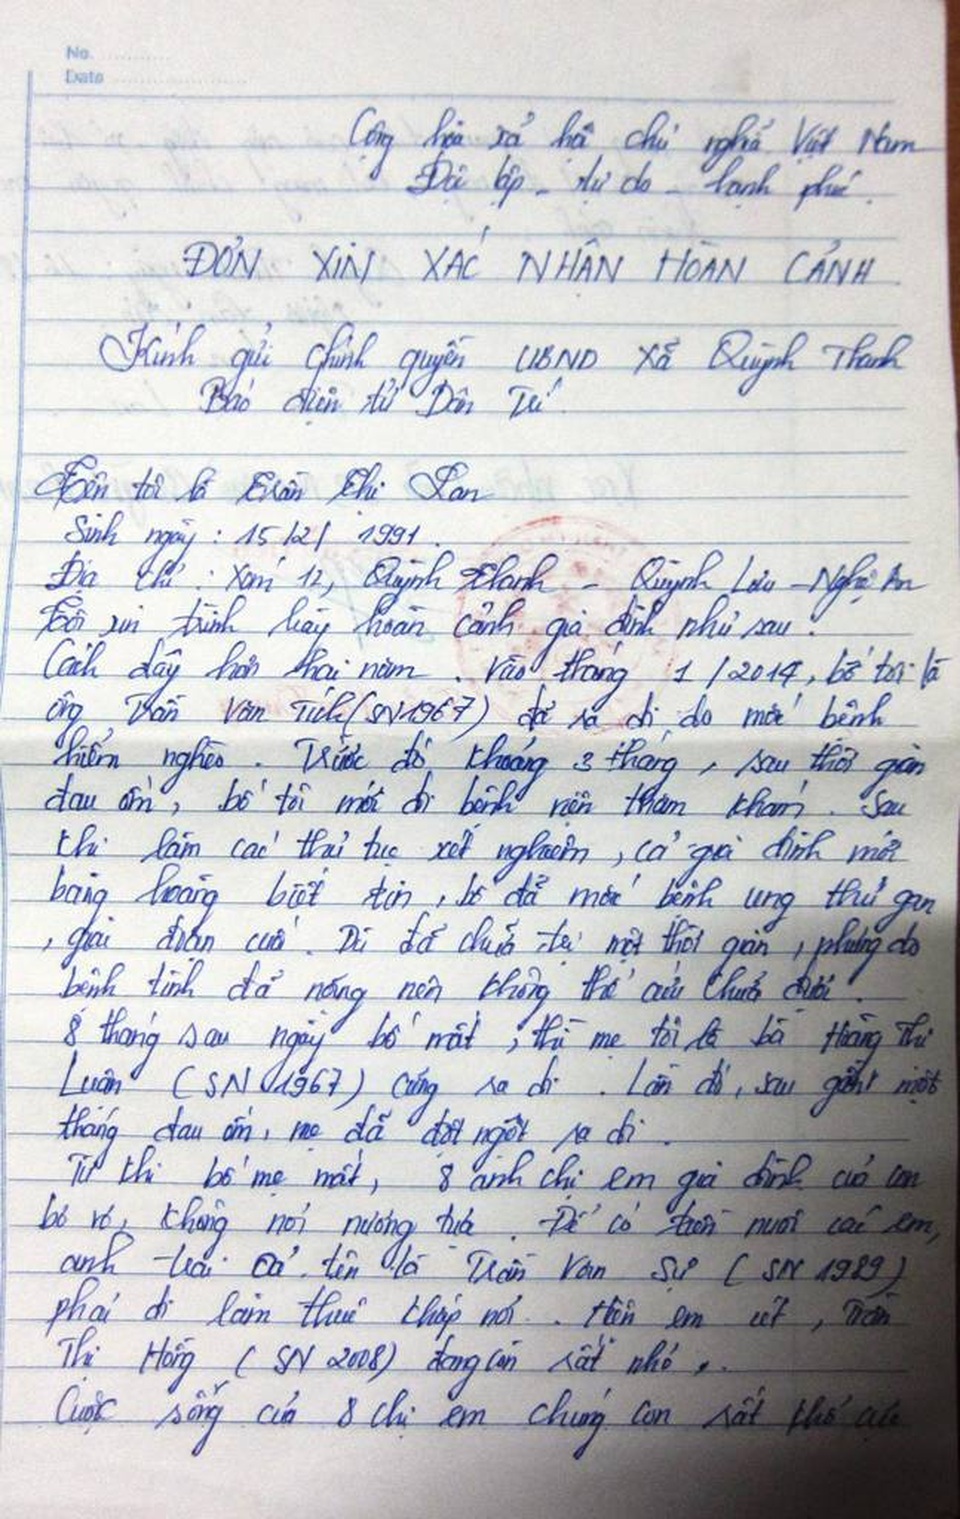 No.
Date
Cộng hòa xả hội chủ nghĩa Việt Nam
Độc lập - tự do - hạnh phúc.
ĐƠN XIN XÁC NHẬN HOÀN CẢNH
Kính gửi chính quyền UBND xã Quỳnh Thanh
Báo điện tử Dân Trí.
Tên tôi là Trần Thị Lan
Sinh ngày: 15/2/ 1991.
Địa chỉ: Xóm 12, Quỳnh Thanh - Quỳnh Lưu - Nghệ An
Tôi xin trình bày hoàn cảnh gia đình như sau:
Cách đây hơn hai năm. Vào tháng 1/2014, bố tôi là
ông Trần Văn Tích (SN 1967) đã ra đi do mắc bệnh
hiểm nghèo. Trước đó khoảng 3 tháng, sau thời gian
đau ốm, bố tôi mới đi bệnh viện thăm khám. Sau
khi làm các thủ tục xét nghiệm, cả gia đình mới
bàng hoàng biết tin, bố đã mắc bệnh ung thư gan
, giai đoạn cuối. Dù đã chữa trị một thời gian, nhưng do
bệnh tình đã nặng nên không thể cứu chữa được.
8 tháng sau ngày bố mất, thì mẹ tôi là bà Hoàng Thị
Luân (SN 1967) cũng ra đi. Lần đó, sau gần một
tháng đau ốm, mẹ đã đột ngột ra đi.
Từ khi bố mẹ mất, 8 anh chị em gia đình của con
bơ vơ, không nơi nương tựa. Để có tiền nuôi các em,
anh trai cả tên là Trần Văn Sự (SN 1989)
phải đi làm thuê khắp nơi. Hiện em út, Trần
Thị Hồng (SN 2008) đang còn rất nhỏ.
Cuộc sống của 8 chị em chúng con rất khổ cực